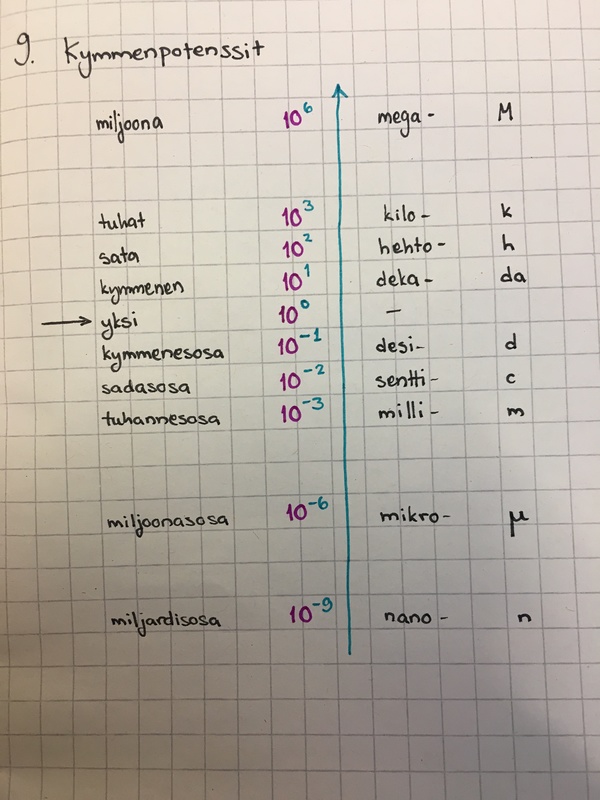 9. Kymmenpotenssit
miljoona 10⁶ mega- M
tuhat 10³ kilo- k
sata 10² hehto- h
kymmenen 10¹ deka- da
→ yksi 10⁰ —
kymmenesosa 10⁻¹ desi- d
sadasosa 10⁻² sentti- c
tuhannesosa 10⁻³ milli- m
miljoonasosa 10⁻⁶ mikro- μ
miljardisosa 10⁻⁹ nano- n